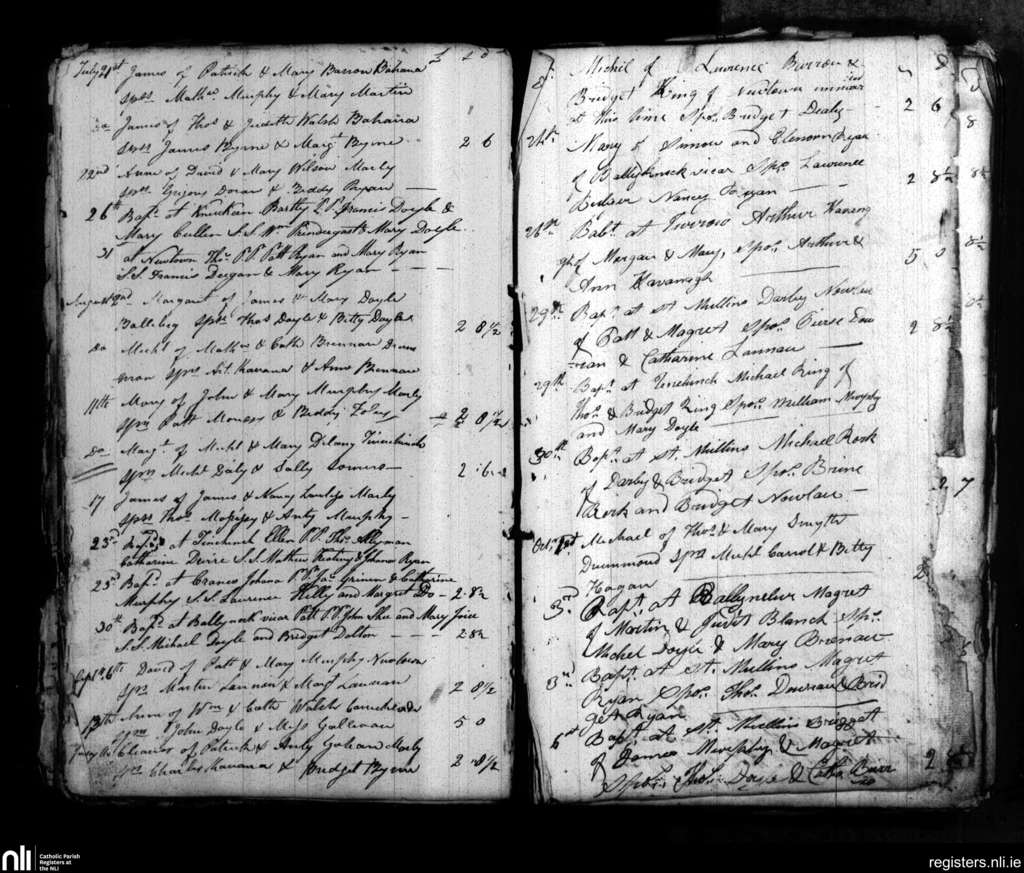 July 21st James of Patrick & Mary Barron Bahana £ s d
Spos Mathw Murphy & Mary Martin
Do James of Thos & Judith Walsh Bahana
Spos James Byrne & Margt Byrne 2 6
22nd Anne of David & Mary Wilson Marly
Spos Gregory Doran & Biddy Ryan
26th Bapt at Knockeen Bartly P.P. Francis Doyle &
Mary Cullen S.S. Wm Prendergast & Mary Doyle
31 at Newtown Thos P.P. Patt Ryan and Mary Ryan
S.S. Francis Deegan & Mary Ryan
August 2nd Margaret of James & Mary Doyle
Spos Thos Doyle & Betty Doyle 2 8 1/2
Do Michl of Mathw & Cathe Brennan
Kavana & Anne Brennan
11th Mary of John & Mary Murphy Marly
Spos Patt & Biddy 2 8 1/2
Do Margt of Michl & Mary Delany Tinnehinch
Spos Michl Daly & Sally Somers 2 6
17 James of James & Nancy Lawless Marly
Spos Thos & Anty Murphy
23rd Bapt at Tinehinch Ellen P.P. Thos
Catharine S.S. Mathew & Johana Ryan
25th Bapt at Johana P.P. Jas & Catharine
Murphy S.S. Laurence Kelly and Margret Do 2 8 1/2
30th Bapt at Ballynock vicar Patt P.P. John Shee and Mary Joice
S.S. Michael Doyle and Bridget Dalton 2 8 1/2
Sept 6th David of Patt & Mary Murphy Newtown
Spos Martin Lannon & Margt Lannan 2 8 1/2
Anne of Wm & Cathe Walsh
Spos John Doyle & Miss Gallwan 5 0
Eleanor of Patrick & Anty Marly
Spos Charles Kavana & Bridget Byrne 2 8 1/2
Michil of Lawrence Barron &
Bridget King of Newtown
at this time Spos Bridget Dealy 2 6
24th Mary of Simon and Elenorn Ryan
of Ballyknock vicar Spos Lawrence
Nancy Ryan 2 8 1/2
26th Bapt at Turrow Arthur Kavang
gh of Morgan & Mary, Spos Arthur &
Ann Kavanagh 5 0
29th Bapt at St Mullins Darby Nowlan
of Patt & Magret Spos Pierse
& Catharine Lannan 2 8 1/2
29th Bapt at Tinehinch Michael King of
Thos & Bridget King Spos William Murphy
and Mary Doyle
30th Bapt at St. Mullins Michael Rork
of Darby & Bridget Spos Brine
Rork and Bridget Nowlan 2 7
Octr 1st Michael of Thos & Mary Smyth
Drummond Spos Michl Carrol & Betty
Hogan
3rd Bapt at Magret
of Martin & Judit Blanch Spos
Michel Doyle & Mary Brenan
3rd Bapt at St. Mullins Magret
Ryan Spos Thos & Brid
get Ryan
6th Bapt at St. Mullins Bridget
of James Murphy & Magret
Spos Thos Doyle & Catha Barr
on 2 8 1/2
nli
Catholic Parish
Registers at
the NLI
registers.nli.ie